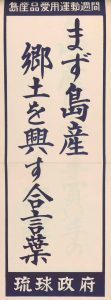 島産品愛用運動週間
まず島産
郷土を興す合言葉
琉球政府